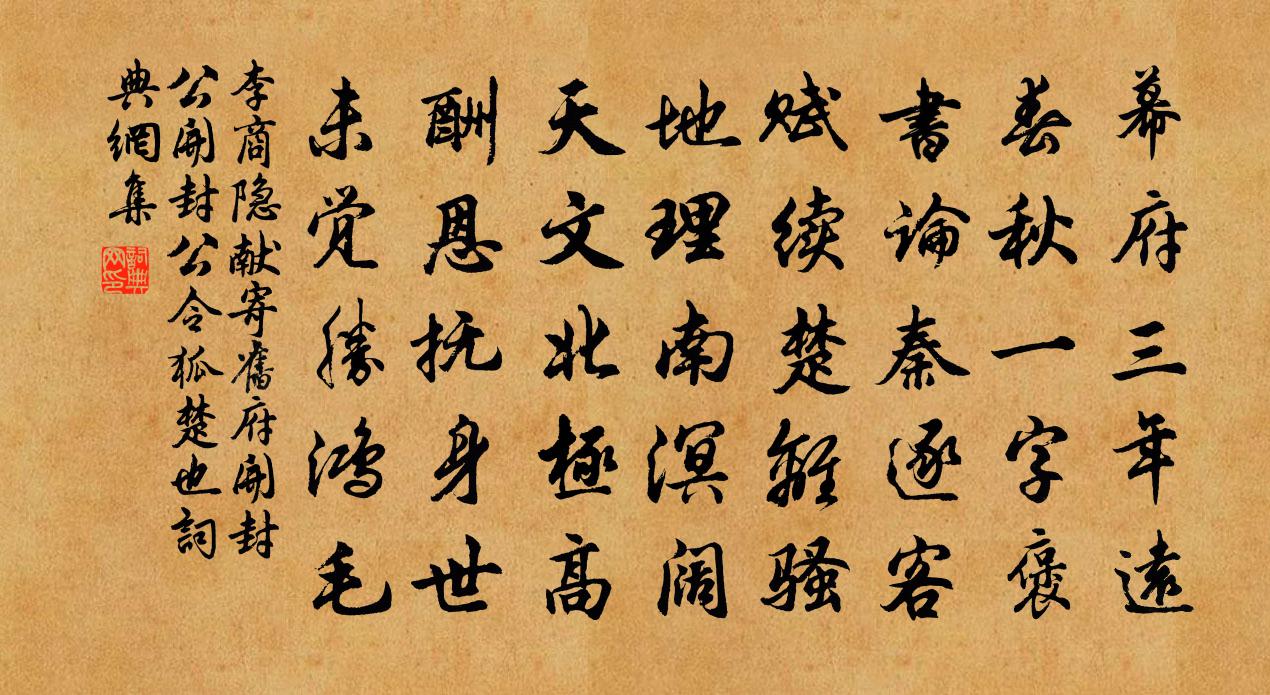 幕府三年遠
春秋一字褒
書論秦逐客
赋续楚離骚
地理南溟阔
天文北極高
酬恩抚身世
未觉勝鸿毛
李商隐献寄舊府開封
公開封公令狐楚也詞
典網集
詞典
网印